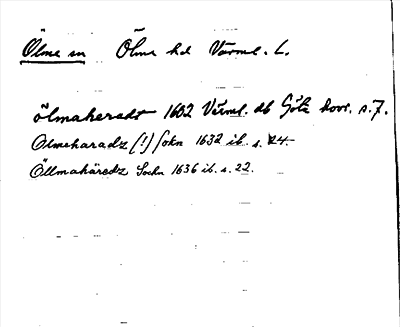 Ölme sn Ölme hd Värml. L.
ölmaheradt 1602 Värml. db Götz horr. s. 7.
Olmeharadz (!) sokn 1632 ib. s. 24.
Öllmahäredz Sochn 1636 ib. s. 22.